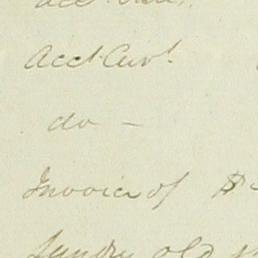 Acct. Curt.
do —
Invoice of $
Sundry old